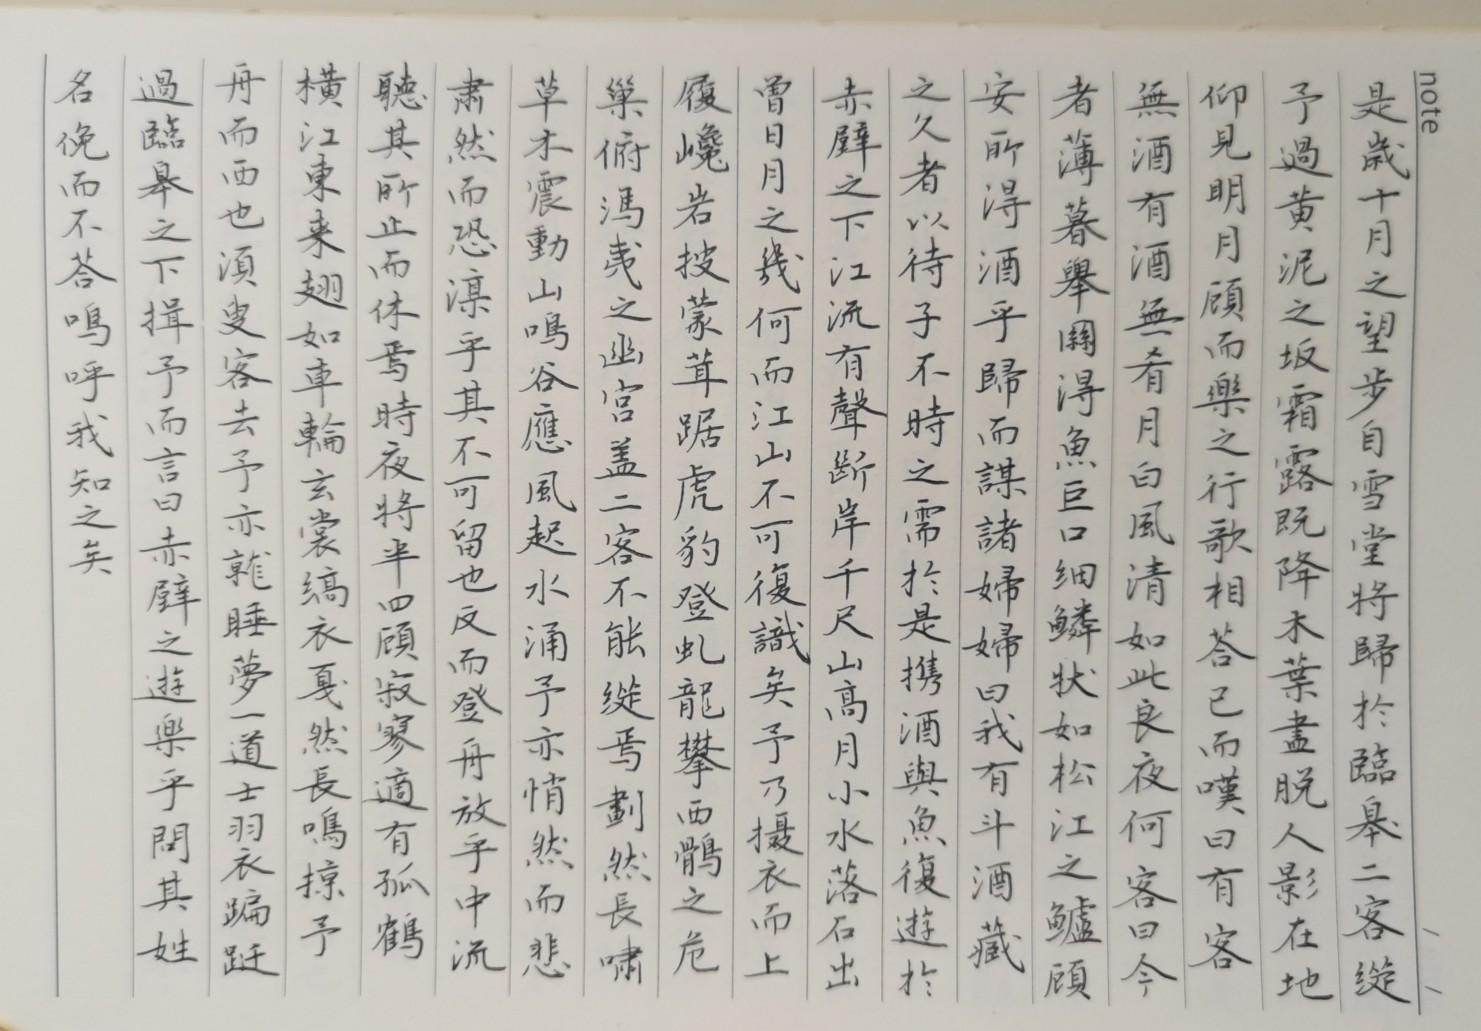 note
是歲十月之望步自雪堂將歸於臨皋二客縱
予過黃泥之坂霜露既降木葉盡脱人影在地
仰見明月顧而樂之行歌相荅已而嘆曰有客
無酒有酒無肴月白風清如此良夜何客曰今
者薄暮舉網得魚巨口细鱗狀如松江之鱸顧
安所得酒乎歸而謀諸婦婦曰我有斗酒藏
之久者以待子不時之需於是携酒與魚復遊於
赤壁之下江流有聲斷岸千尺山高月小水落石出
曾日月之幾何而江山不可復識矣予乃摄衣而上
履巉岩披蒙茸踞虎豹登虬龍攀西鶻之危
巢俯馮夷之幽宫盖二客不能縱焉劃然長嘯
草木震動山鳴谷應風起水涌予亦悄然而悲
肅然而恐凜乎其不可留也反而登舟放乎中流
聽其所止而休焉時夜將半四顧寂寥適有孤鶴
橫江東来翅如車輪玄裳縞衣戛然長鳴掠予
舟而西也湏叟客去予亦就睡夢一道士羽衣蹁跹
過臨皋之下揖予而言曰赤壁之遊樂乎問其姓
名俛而不荅鳴呼我知之矣